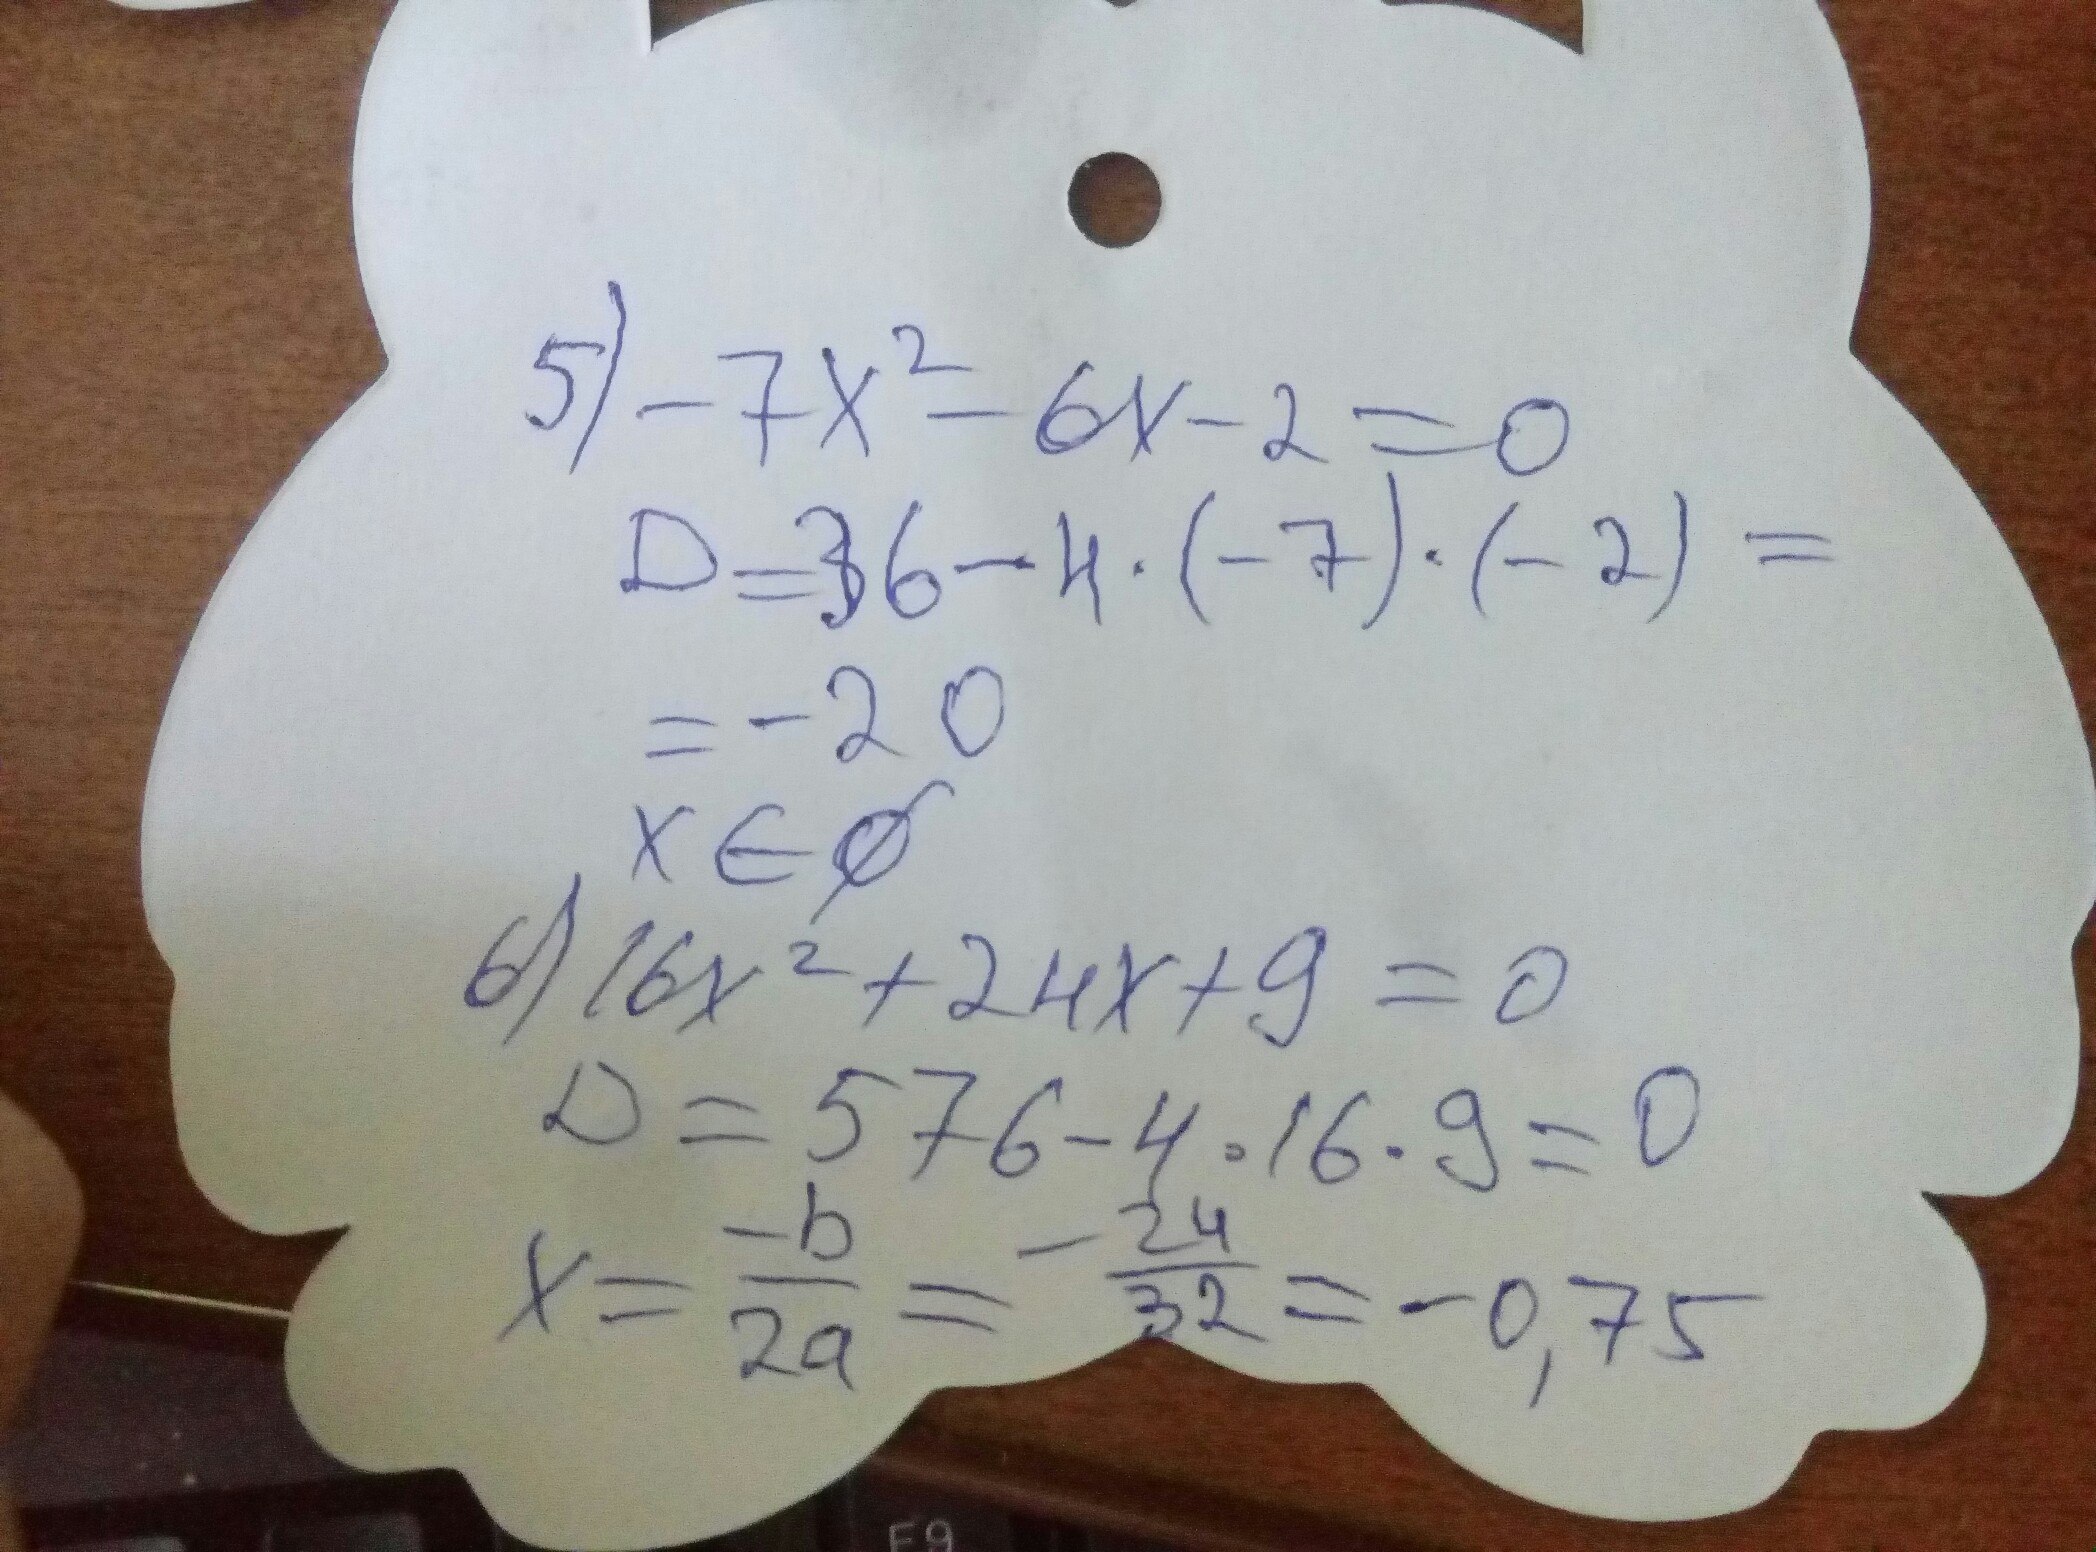 5) -7x² - 6x - 2 = 0
D = 36 - 4 · (-7) · (-2) =
= -20
x ∈ ∅
6) 16x² + 24x + 9 = 0
D = 576 - 4 · 16 · 9 = 0
x = -b/2a = -24/32 = -0,75
F9